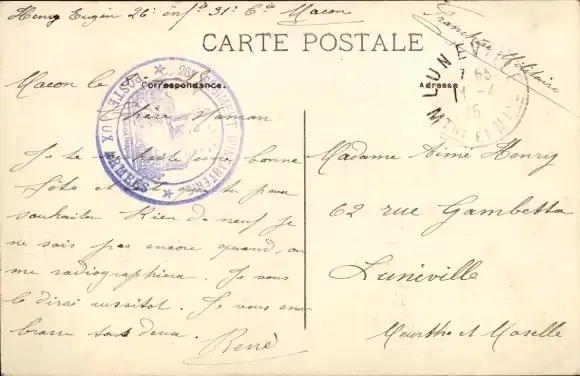 Henry Eugèn 26e infie 31e Cie Macon
Franchise Militaire
CARTE POSTALE
Correspondance.
Adresse
26e REGIMENT D'INFANTERIE
POSTE AUX ARMÉES
LUNEVILLE
MTHE ET M
Macon le
Chère Maman
Je te souhaite une bonne
fête et
souhaiter Rien de neuf je
ne sais pas encore quand, on
me radiographiera. Je vous
le dirai aussitot. Je vous em
brasse tous deux.
René
Madame Aimé Henry
62 rue Gambetta
Lunéville
Meurthe et Moselle